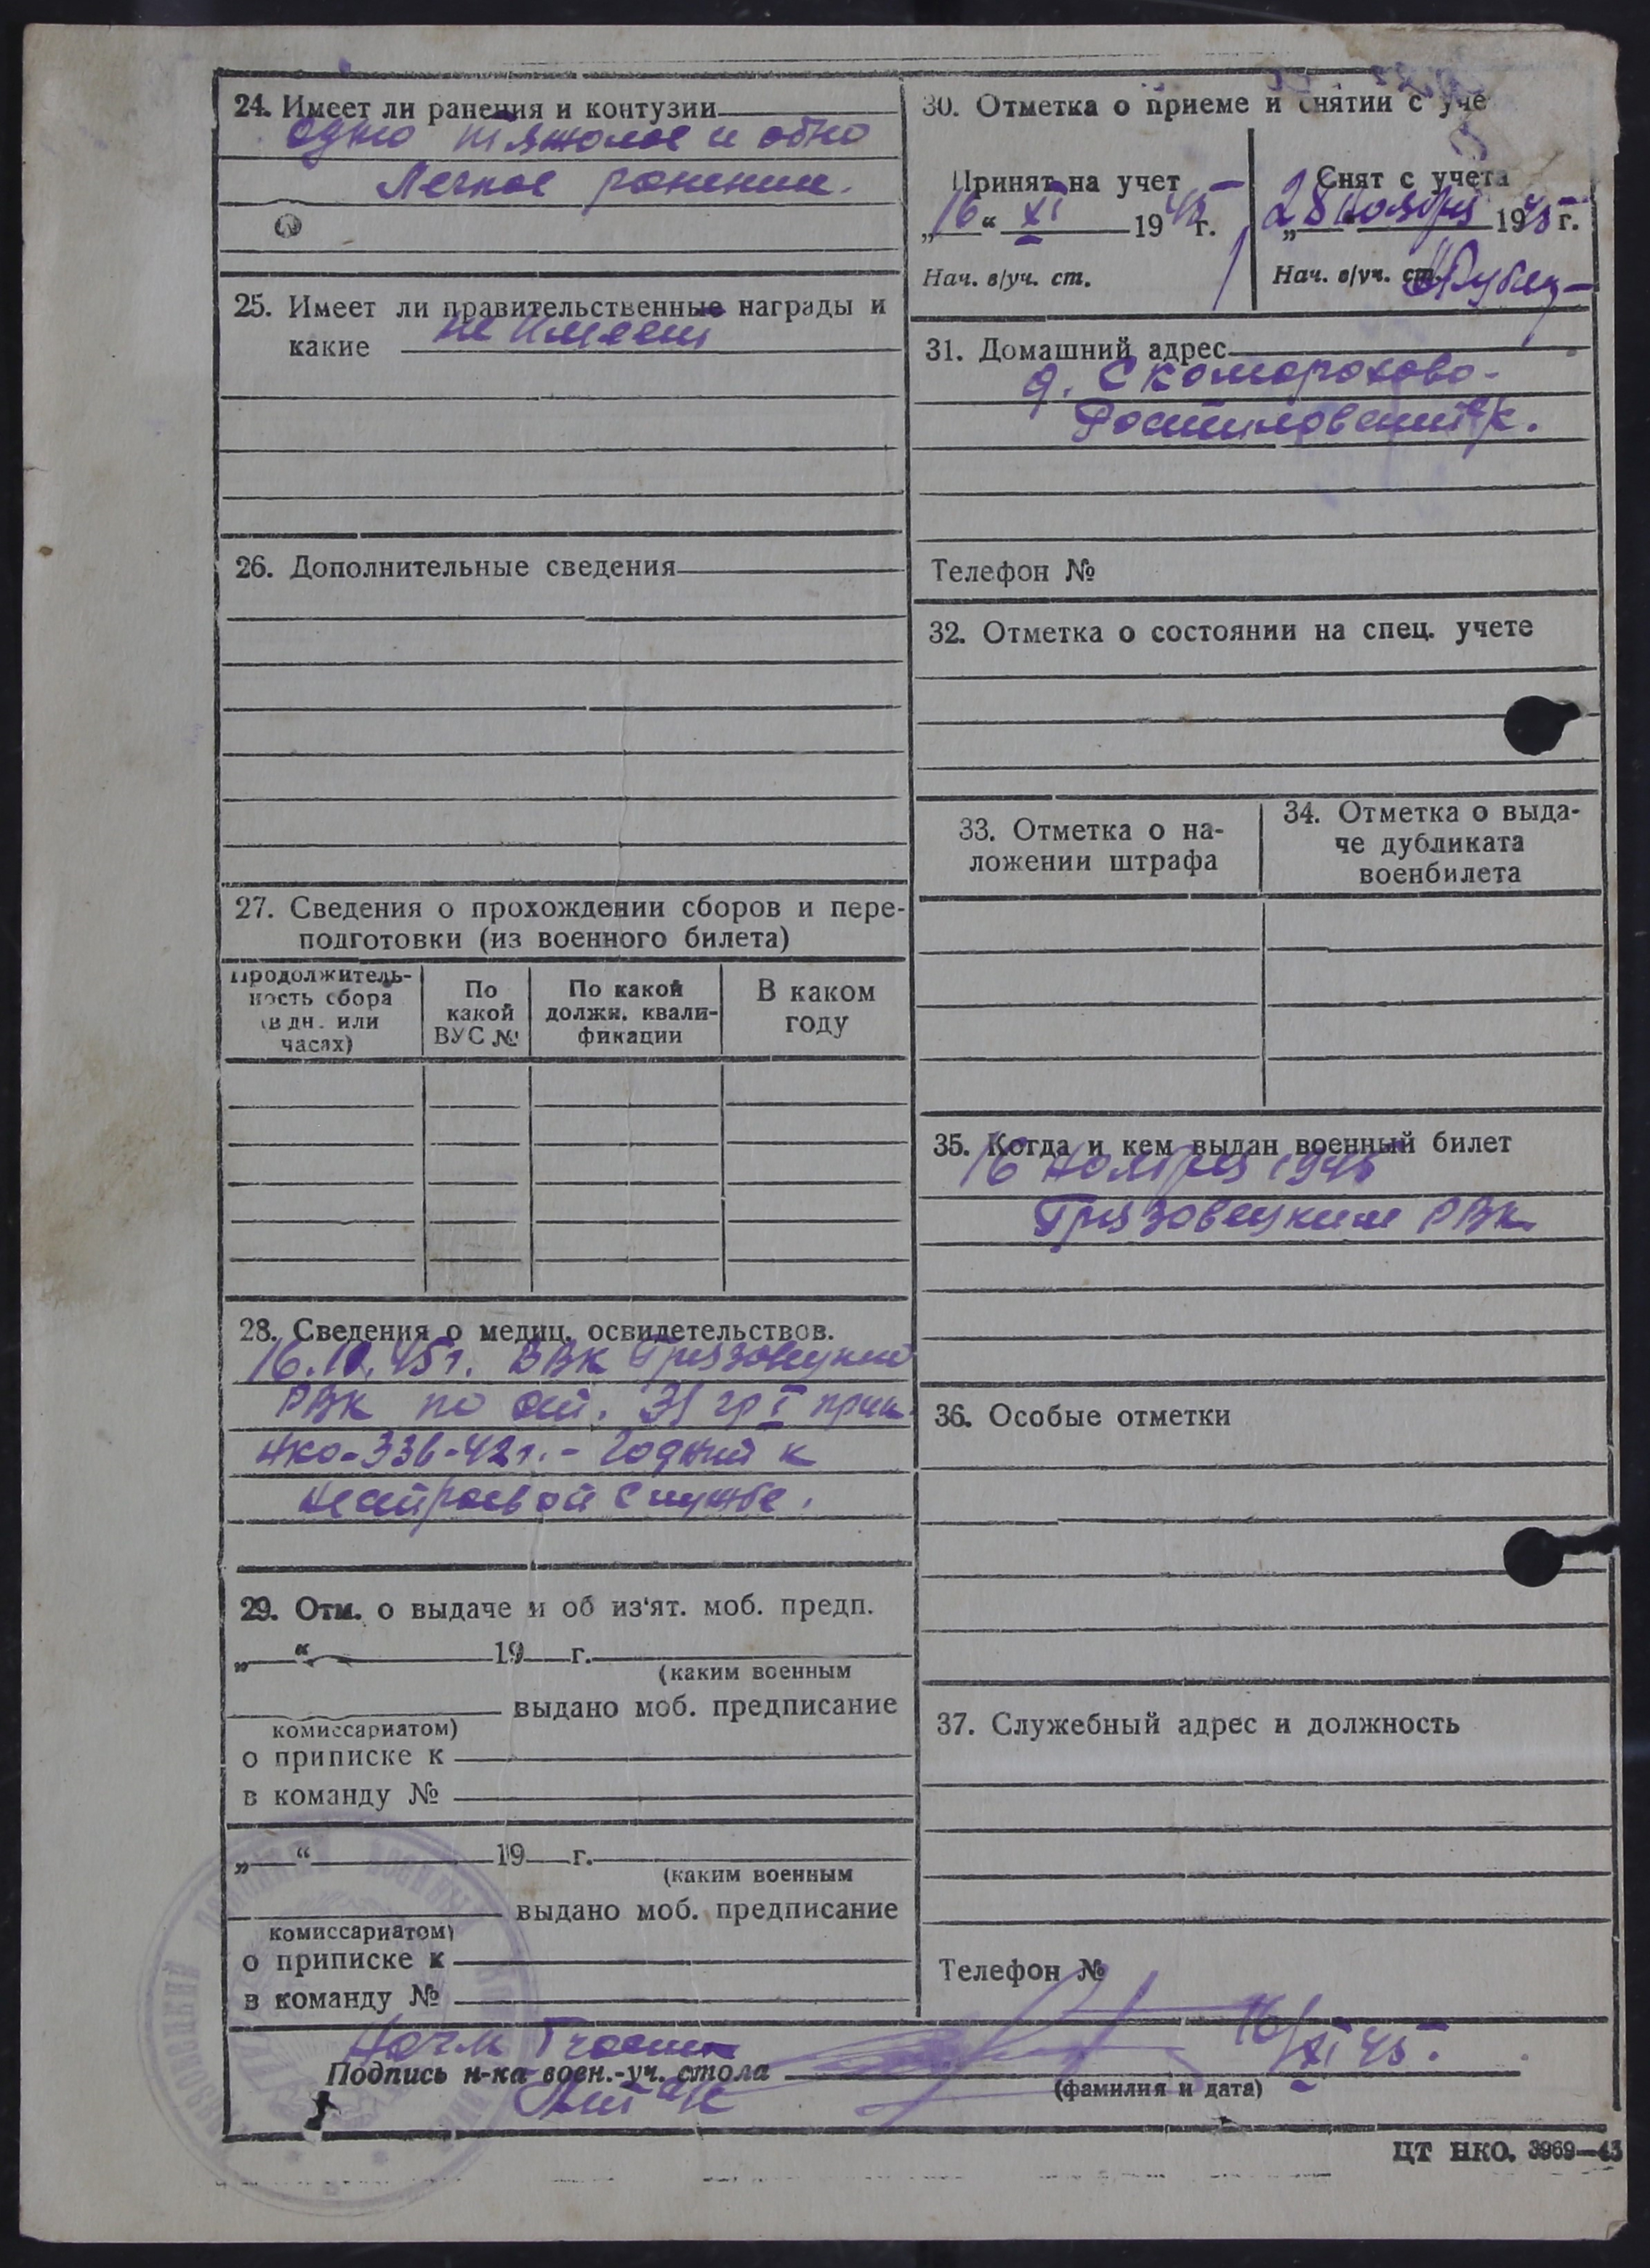 24. Имеет ли ранения и контузии
одно тяжолое и одно
Легкое ранение.
25. Имеет ли правительственные награды и
какие не имеет
26. Дополнительные сведения
27. Сведения о прохождении сборов и пере-
подготовки (из военного билета)
Продолжитель-
ность сбора
(в дн. или
часах)
По
какой
ВУС №
По какой
должн. квали-
фикации
В каком
году
28. Сведения о медиц. освидетельствов.
16.10.45 г. ВВК Грязовецкий
РВК по ст. 31 гр I прик.
НКО-336-42 г. - Годный к
нестроевой службе.
29. Отм. о выдаче и об из'ят. моб. предп.
„ “ 19 г.
(каким военным
выдано моб. предписание
комиссариатом)
о приписке к
в команду №
„ “ 19 г.
(каким военным
выдано моб. предписание
комиссариатом)
о приписке к
в команду №
30. Отметка о приеме и снятии с уче
Принят на учет
„16“ XI 1945 г.
Нач. в/уч. ст.
Снят с учета
„28 ноября 1945 г.
Нач. в/уч. ст.
31. Домашний адрес
д. Скоморохово-
Ростиловский с/с.
Телефон №
32. Отметка о состоянии на спец. учете
33. Отметка о на-
ложении штрафа
34. Отметка о выда-
че дубликата
военбилета
35. Когда и кем выдан военный билет
16 ноября 1945
Грязовецким РВК
36. Особые отметки
37. Служебный адрес и должность
Телефон №
Подпись н-ка воен.-уч. стола
16/XI 45.
(фамилия и дата)
ЦТ НКО. 3969—43